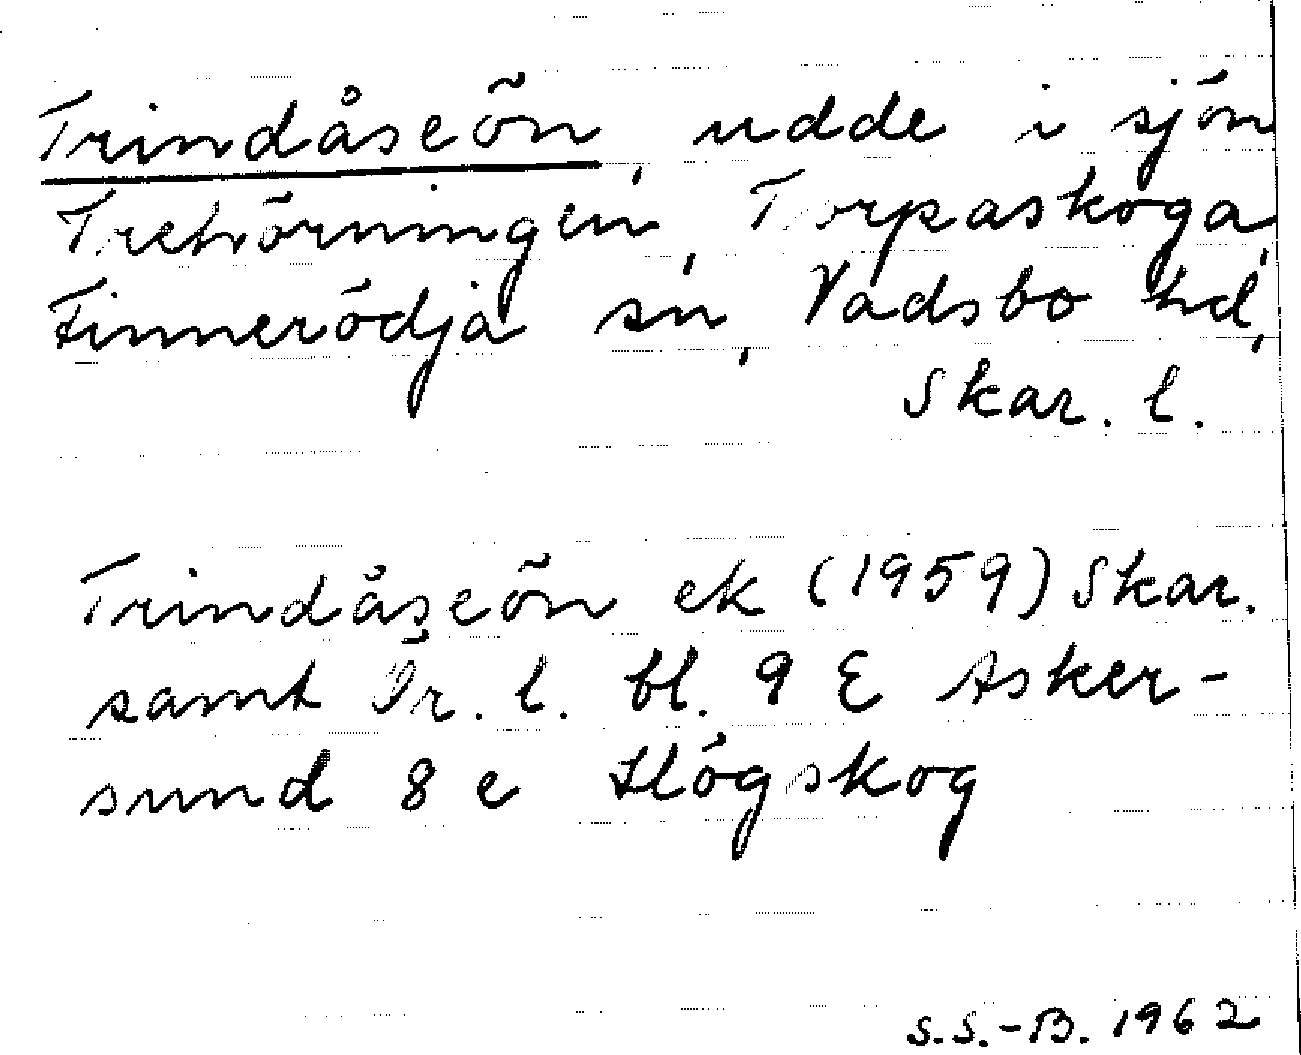 Trindåseön, udde i sjön
Trehörningen, Torpaskoga,
Finnerödja sn, Vadsbo hd,
Skar. l.
Trindåseön ek (1959) Skar.
samt Ör. l. bl. 9 E Asker-
sund 8 e Högskog
S.S.-B. 1962